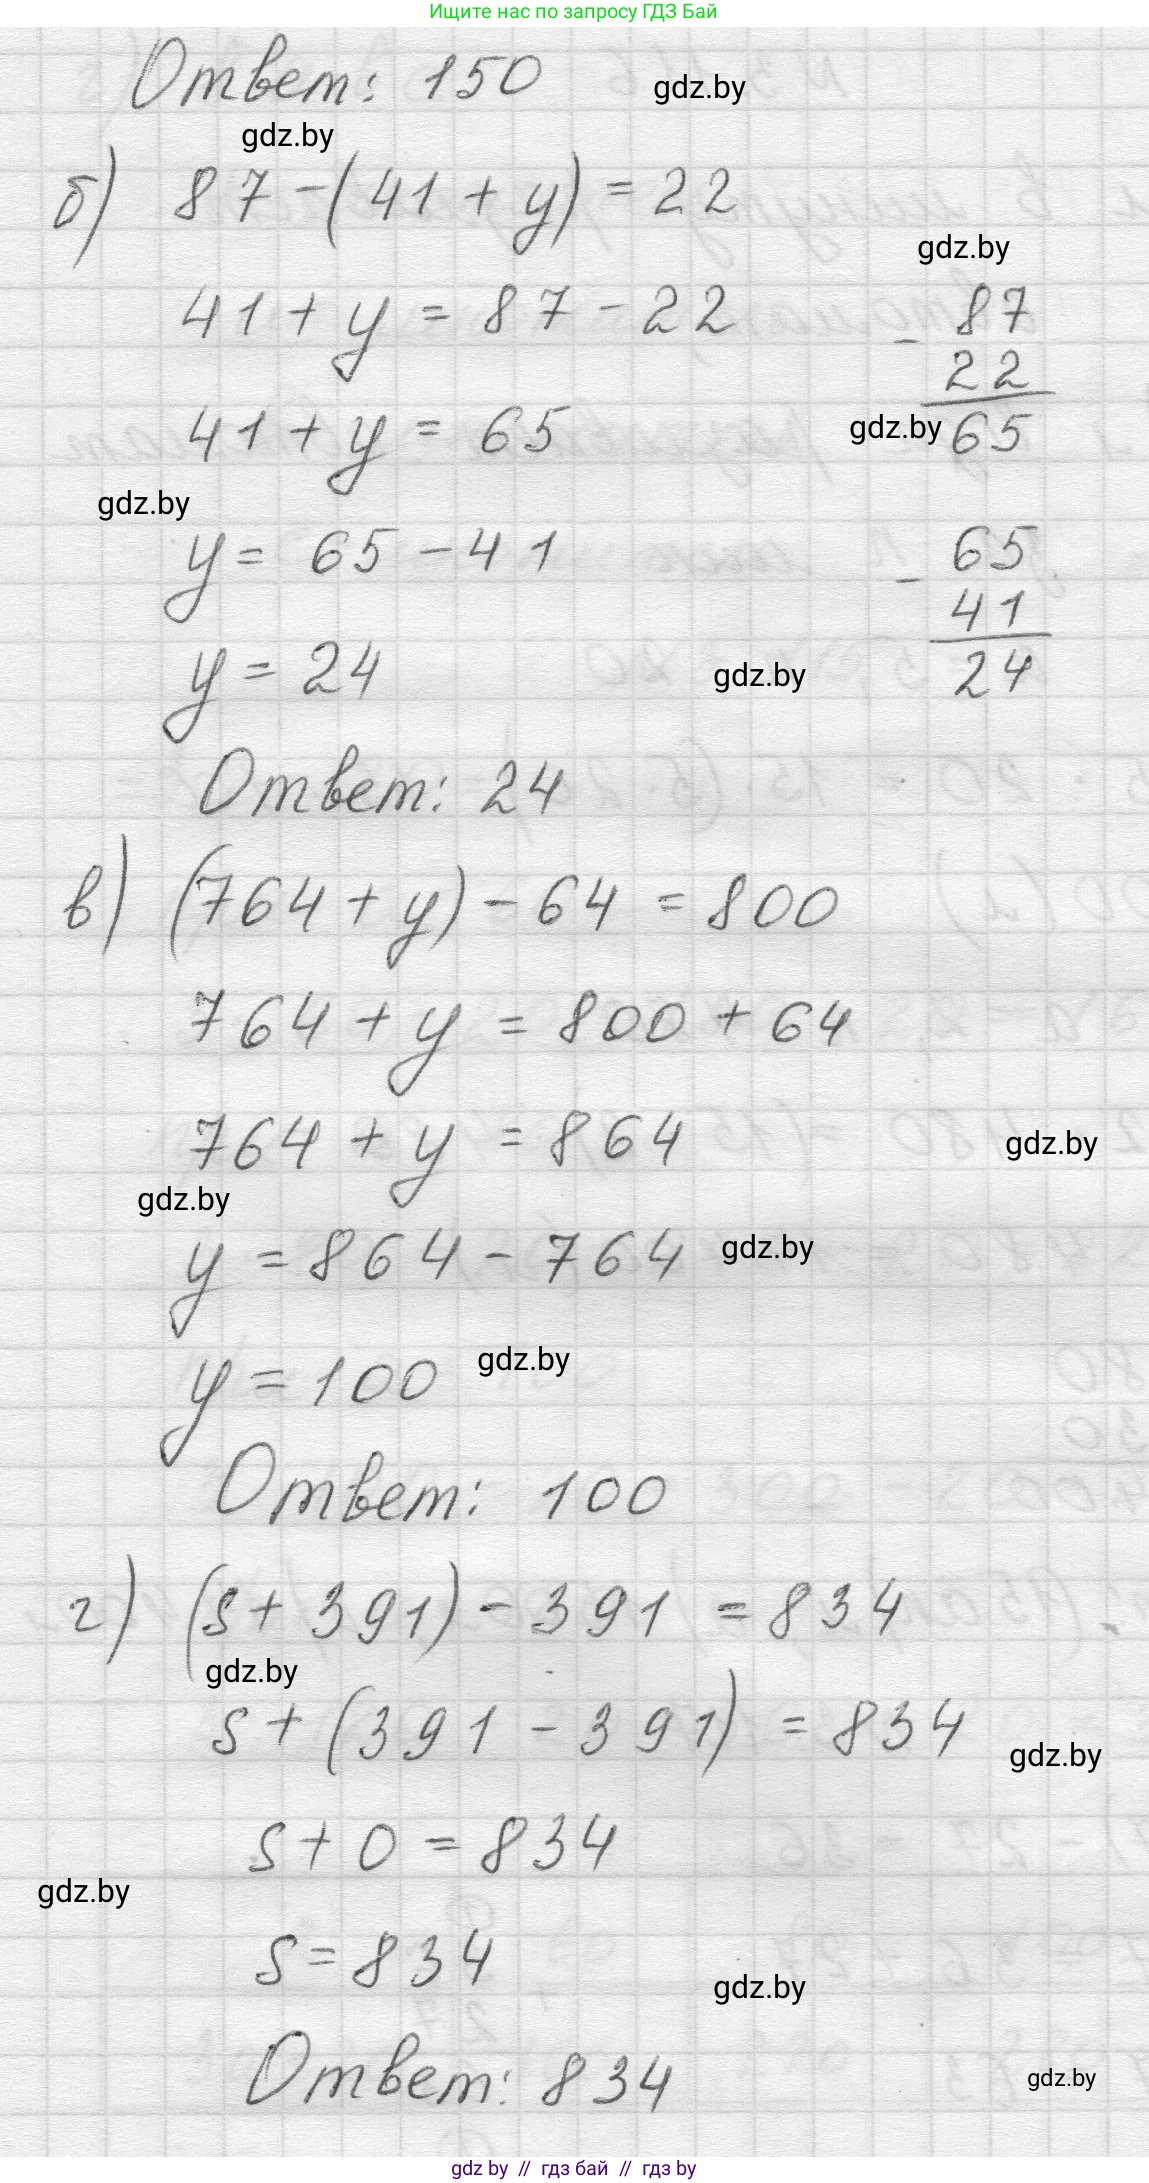 Ищите нас по запросу ГДЗ Бай
Ответ: 150
gdz.by
gdz.by
б) 87 - (41 + y) = 22
gdz.by
41 + y = 87 - 22
- 87
22
65
41 + y = 65
gdz.by
gdz.by
y = 65 - 41
- 65
41
24
y = 24
gdz.by
Ответ: 24
в) (764 + y) - 64 = 800
764 + y = 800 + 64
764 + y = 864
gdz.by
gdz.by
y = 864 - 764
gdz.by
y = 100
gdz.by
Ответ: 100
г) (s + 391) - 391 = 834
gdz.by
s + (391 - 391) = 834
gdz.by
s + 0 = 834
gdz.by
s = 834
gdz.by
Ответ: 834
gdz.by
gdz by // гдз бай // гдз by